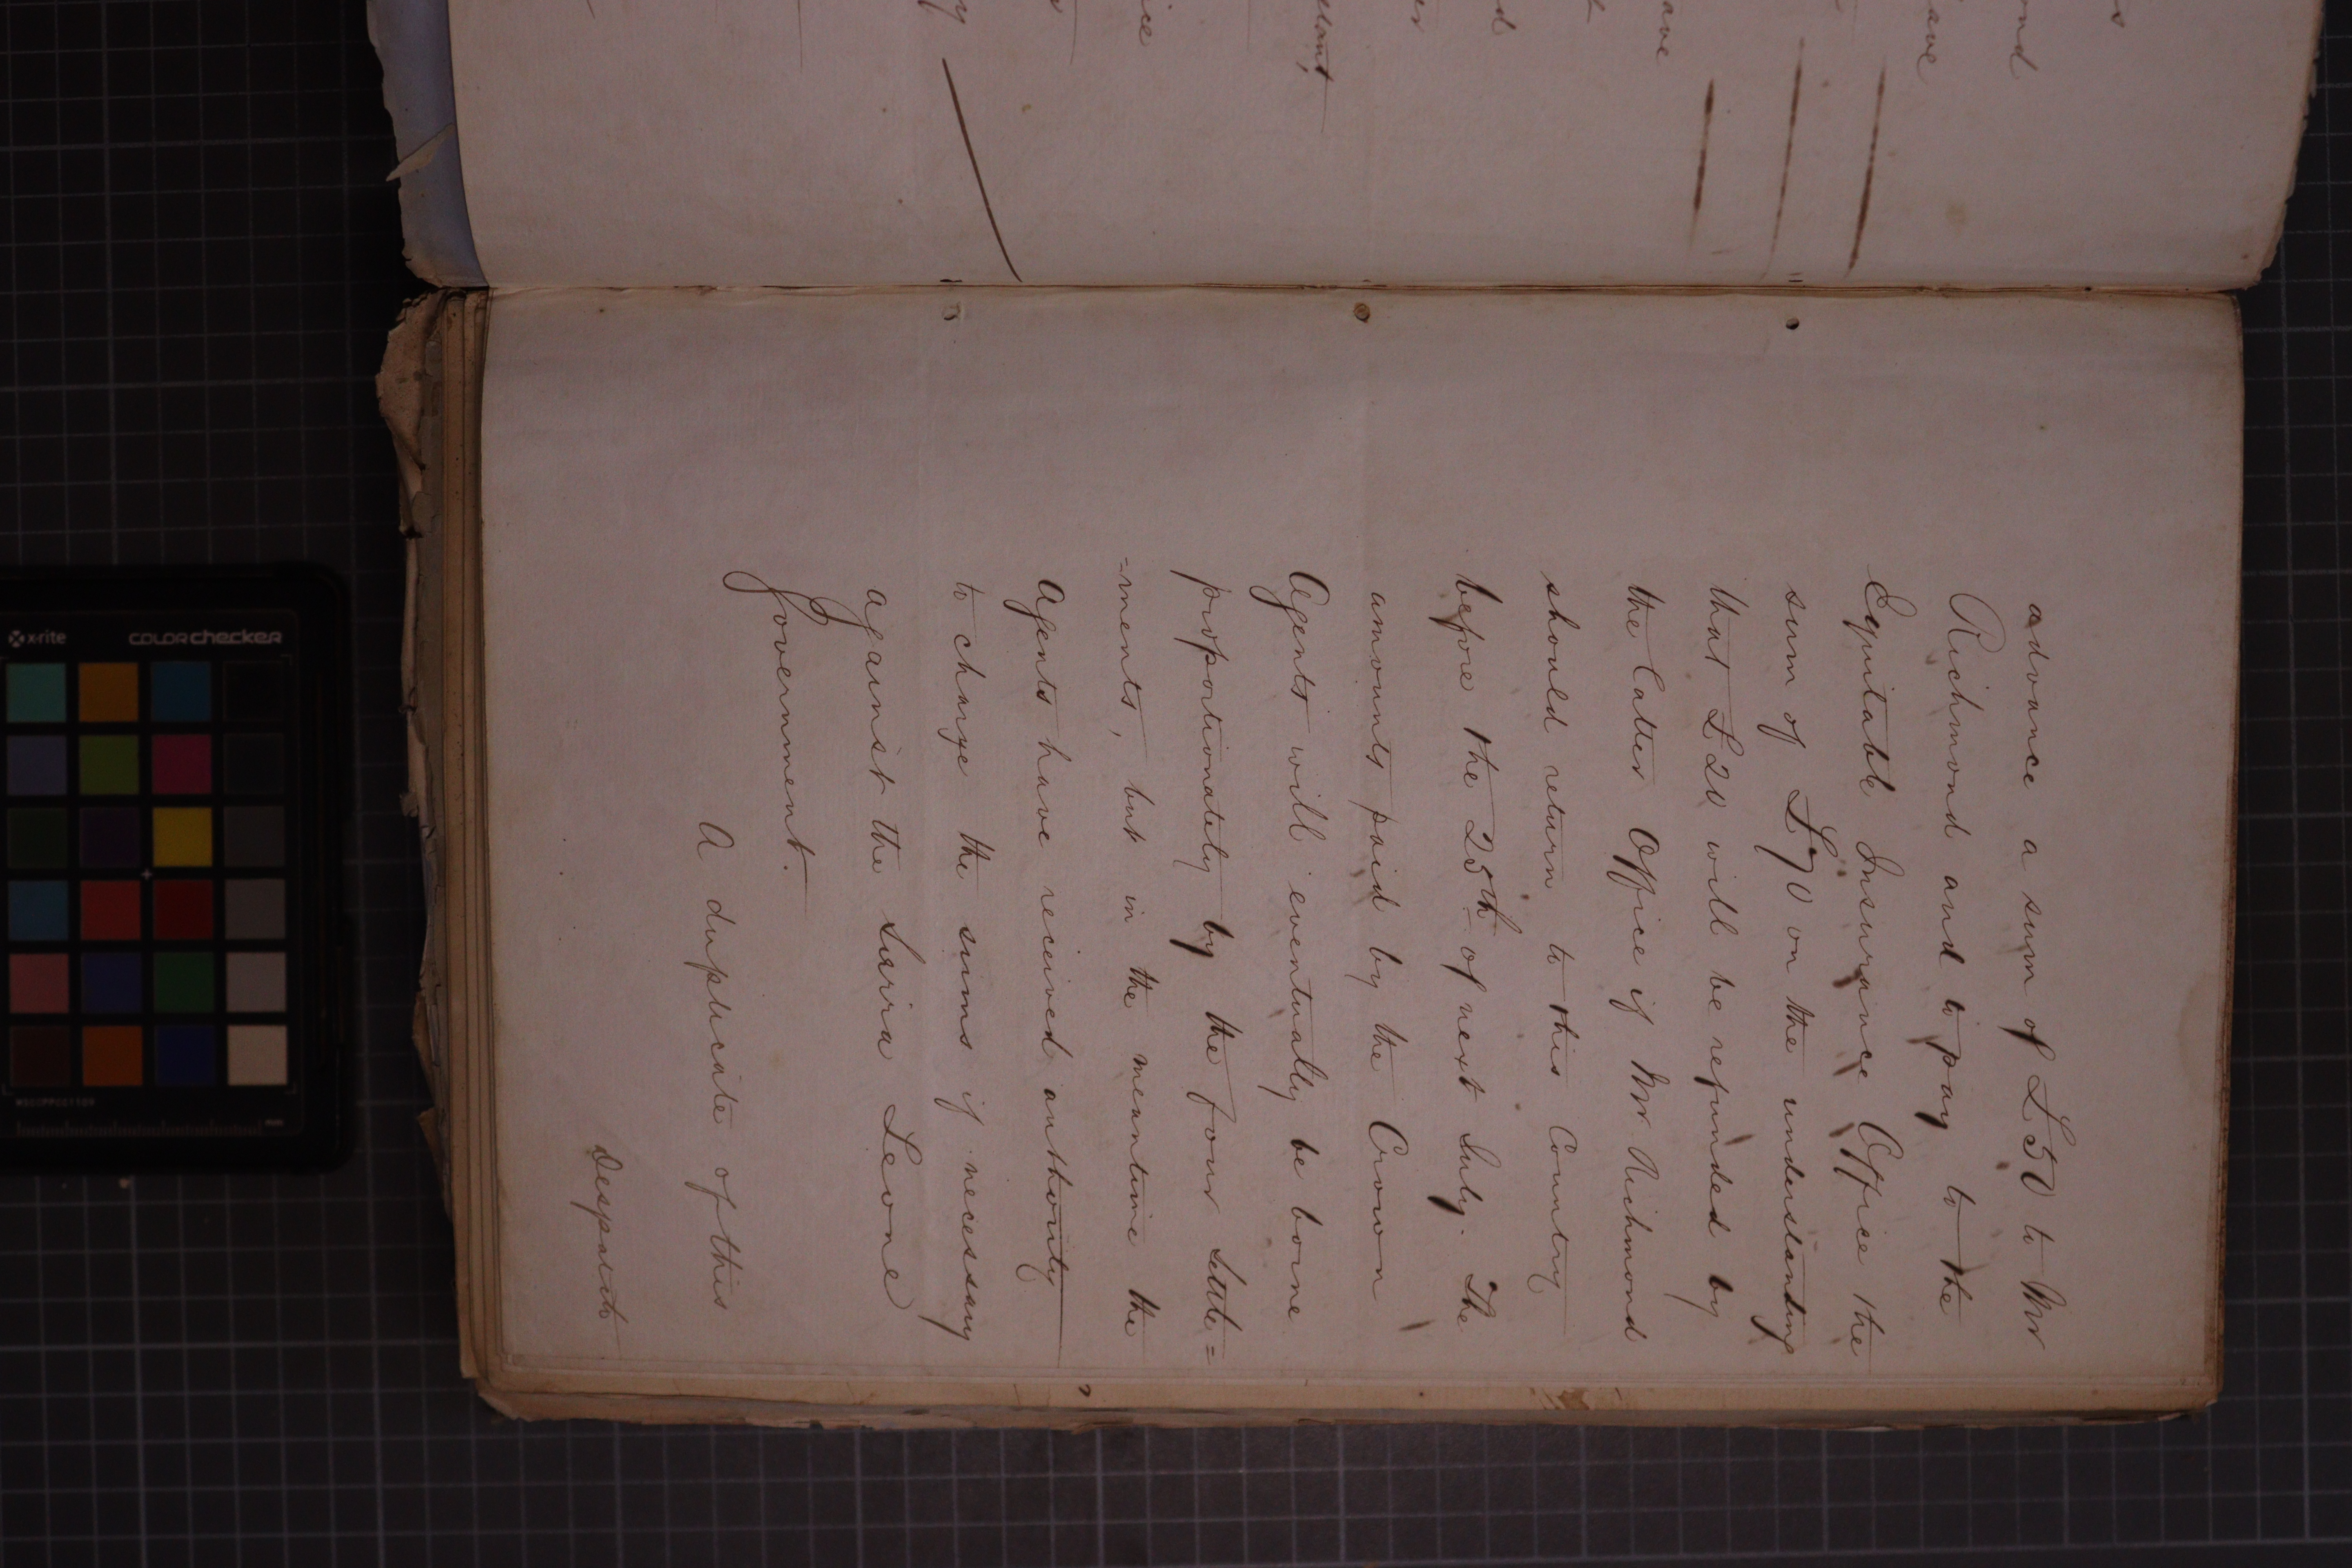 advance a sum of £50 to Mr
Richmond and to pay to the
Equitable Insurance Office the
sum of £70 on the understanding
that £20 will be refunded by
the latter Office if Mr Richmond
should return to this Country
before the 25th of next July. The
amounts paid by the Crown
Agents will eventually be borne
proportionately by the four Settle=
-ments, but in the meantime the
Agents have received authority
to charge the sums if necessary
against the Sierra Leone
Government.
A duplicate of this
Despatch
x-rite
colorchecker